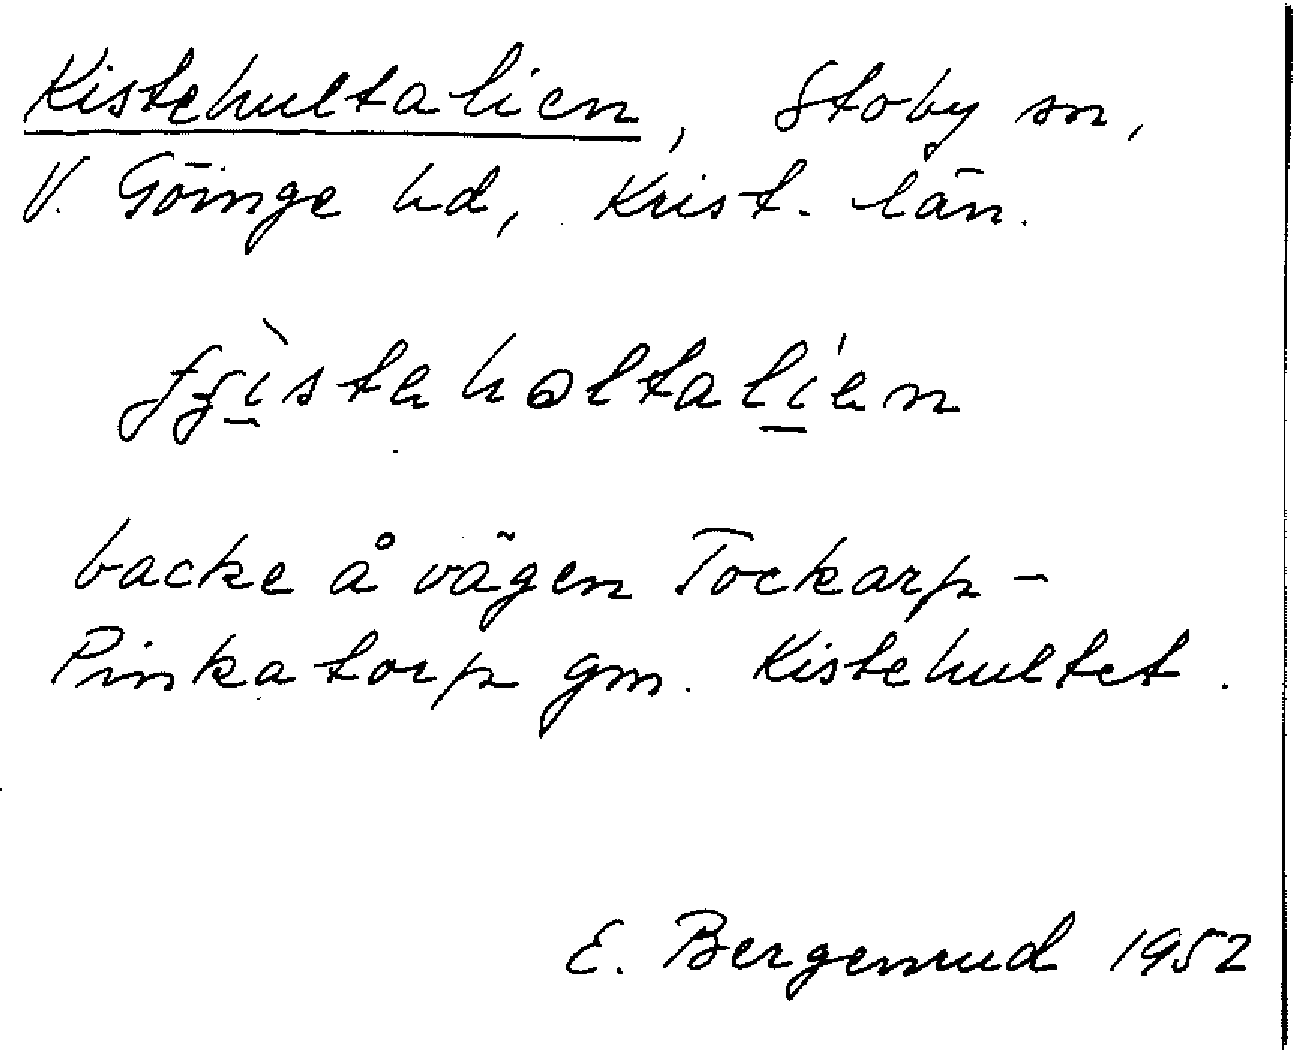 Kistehultalien, Stoby sn,
V. Göinge hd, Krist. län.
backe å vägen Tockarp-
Pinkatorp gm. Kistehultet.
E. Bergerud 1952